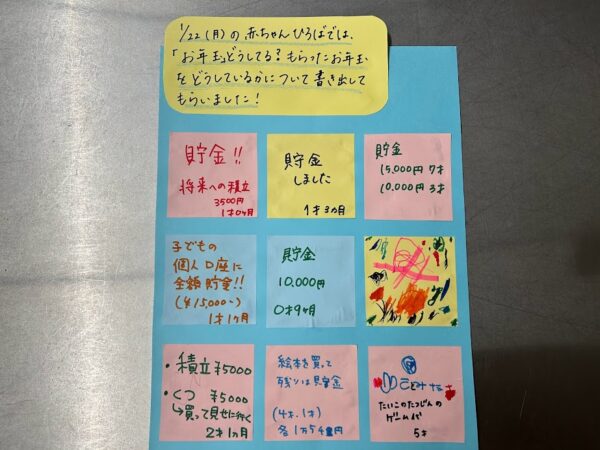 1/22(月)の赤ちゃんひろばでは、
「お年玉どうしてる?もらったお年玉
をどうしているかについて書き出して
もらいました!
貯金!!
将来への積立
3500円
1才0ヶ月
貯金
しました
1才3ヵ月
貯金
15,000円 7才
10,000円 3才
子どもの
個人口座に
全額貯金!!
(¥15,000~)
1才1ヶ月
貯金
10,000円
0才9ヶ月
・積立¥5000
・くつ ¥5000
↳買って見せに行く
2才1ヵ月
絵本を買って
残りは貯金
(4才.1才)
各1万5千円
たいこのたつじんの
ゲーム代
5才